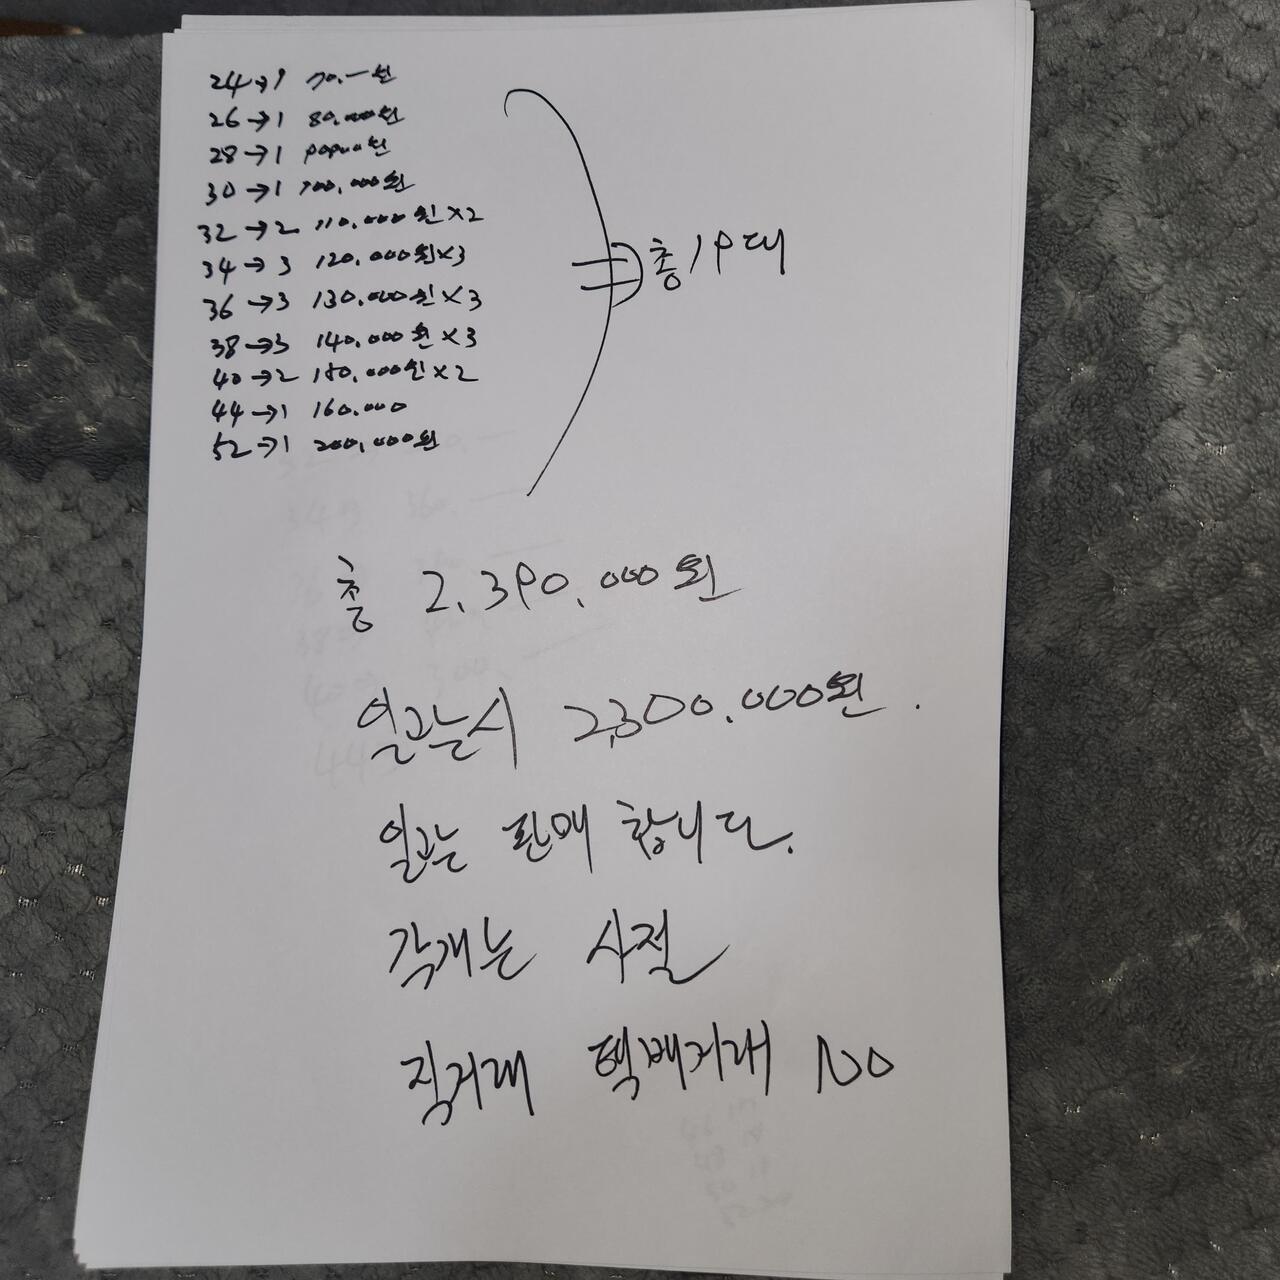 24→1 70.一원
26→1 80.000원
28→1 90,000원
30→1 100,000원
32→2 110.000원×2
34→3 120.000원×3
36→3 130.000원×3
38→3 140.000원×3
40→2 150.000원×2
44→1 160.000
52→1 200,000원
총19대
총 2,390,000원
일괄시 2,300,000원.
일괄 판매 합니다.
각개는 사절
직거래 택배거래 NO